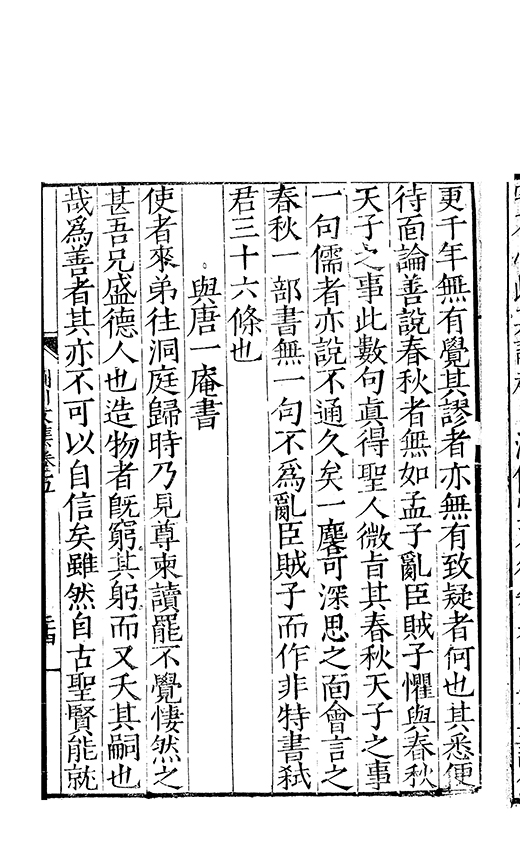 更千年無有覺其謬者亦無有致疑者何也其悉便
待面論善說春秋者無如孟子亂臣賊子懼與春秋
天子之事此數句眞得聖人微旨其春秋天子之事
一句儒者亦說不通久矣一麐可深思之面會言之
春秋一部書無一句不爲亂臣賊子而作非特書弒
君三十六條也
與唐一庵書
使者來弟往洞庭歸時乃見尊柬讀罷不覺悽然之
甚吾兄盛德人也造物者旣窮其躬而又夭其嗣也
哉爲善者其亦不可以自信矣雖然自古聖賢能就